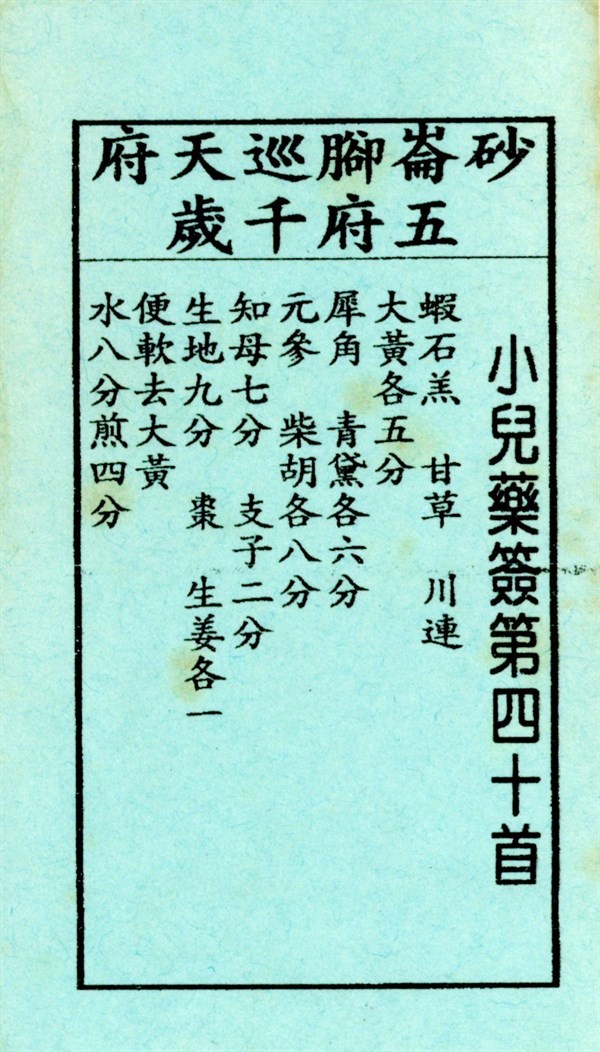 砂崙腳巡天府
五府千歲
小兒藥簽第四十首
蝦石羔 甘草 川連
大黃各五分
犀角 青黛各六分
元參 柴胡各八分
知母七分 支子二分
生地九分 棗 生姜各一
便軟去大黃
水八分煎四分